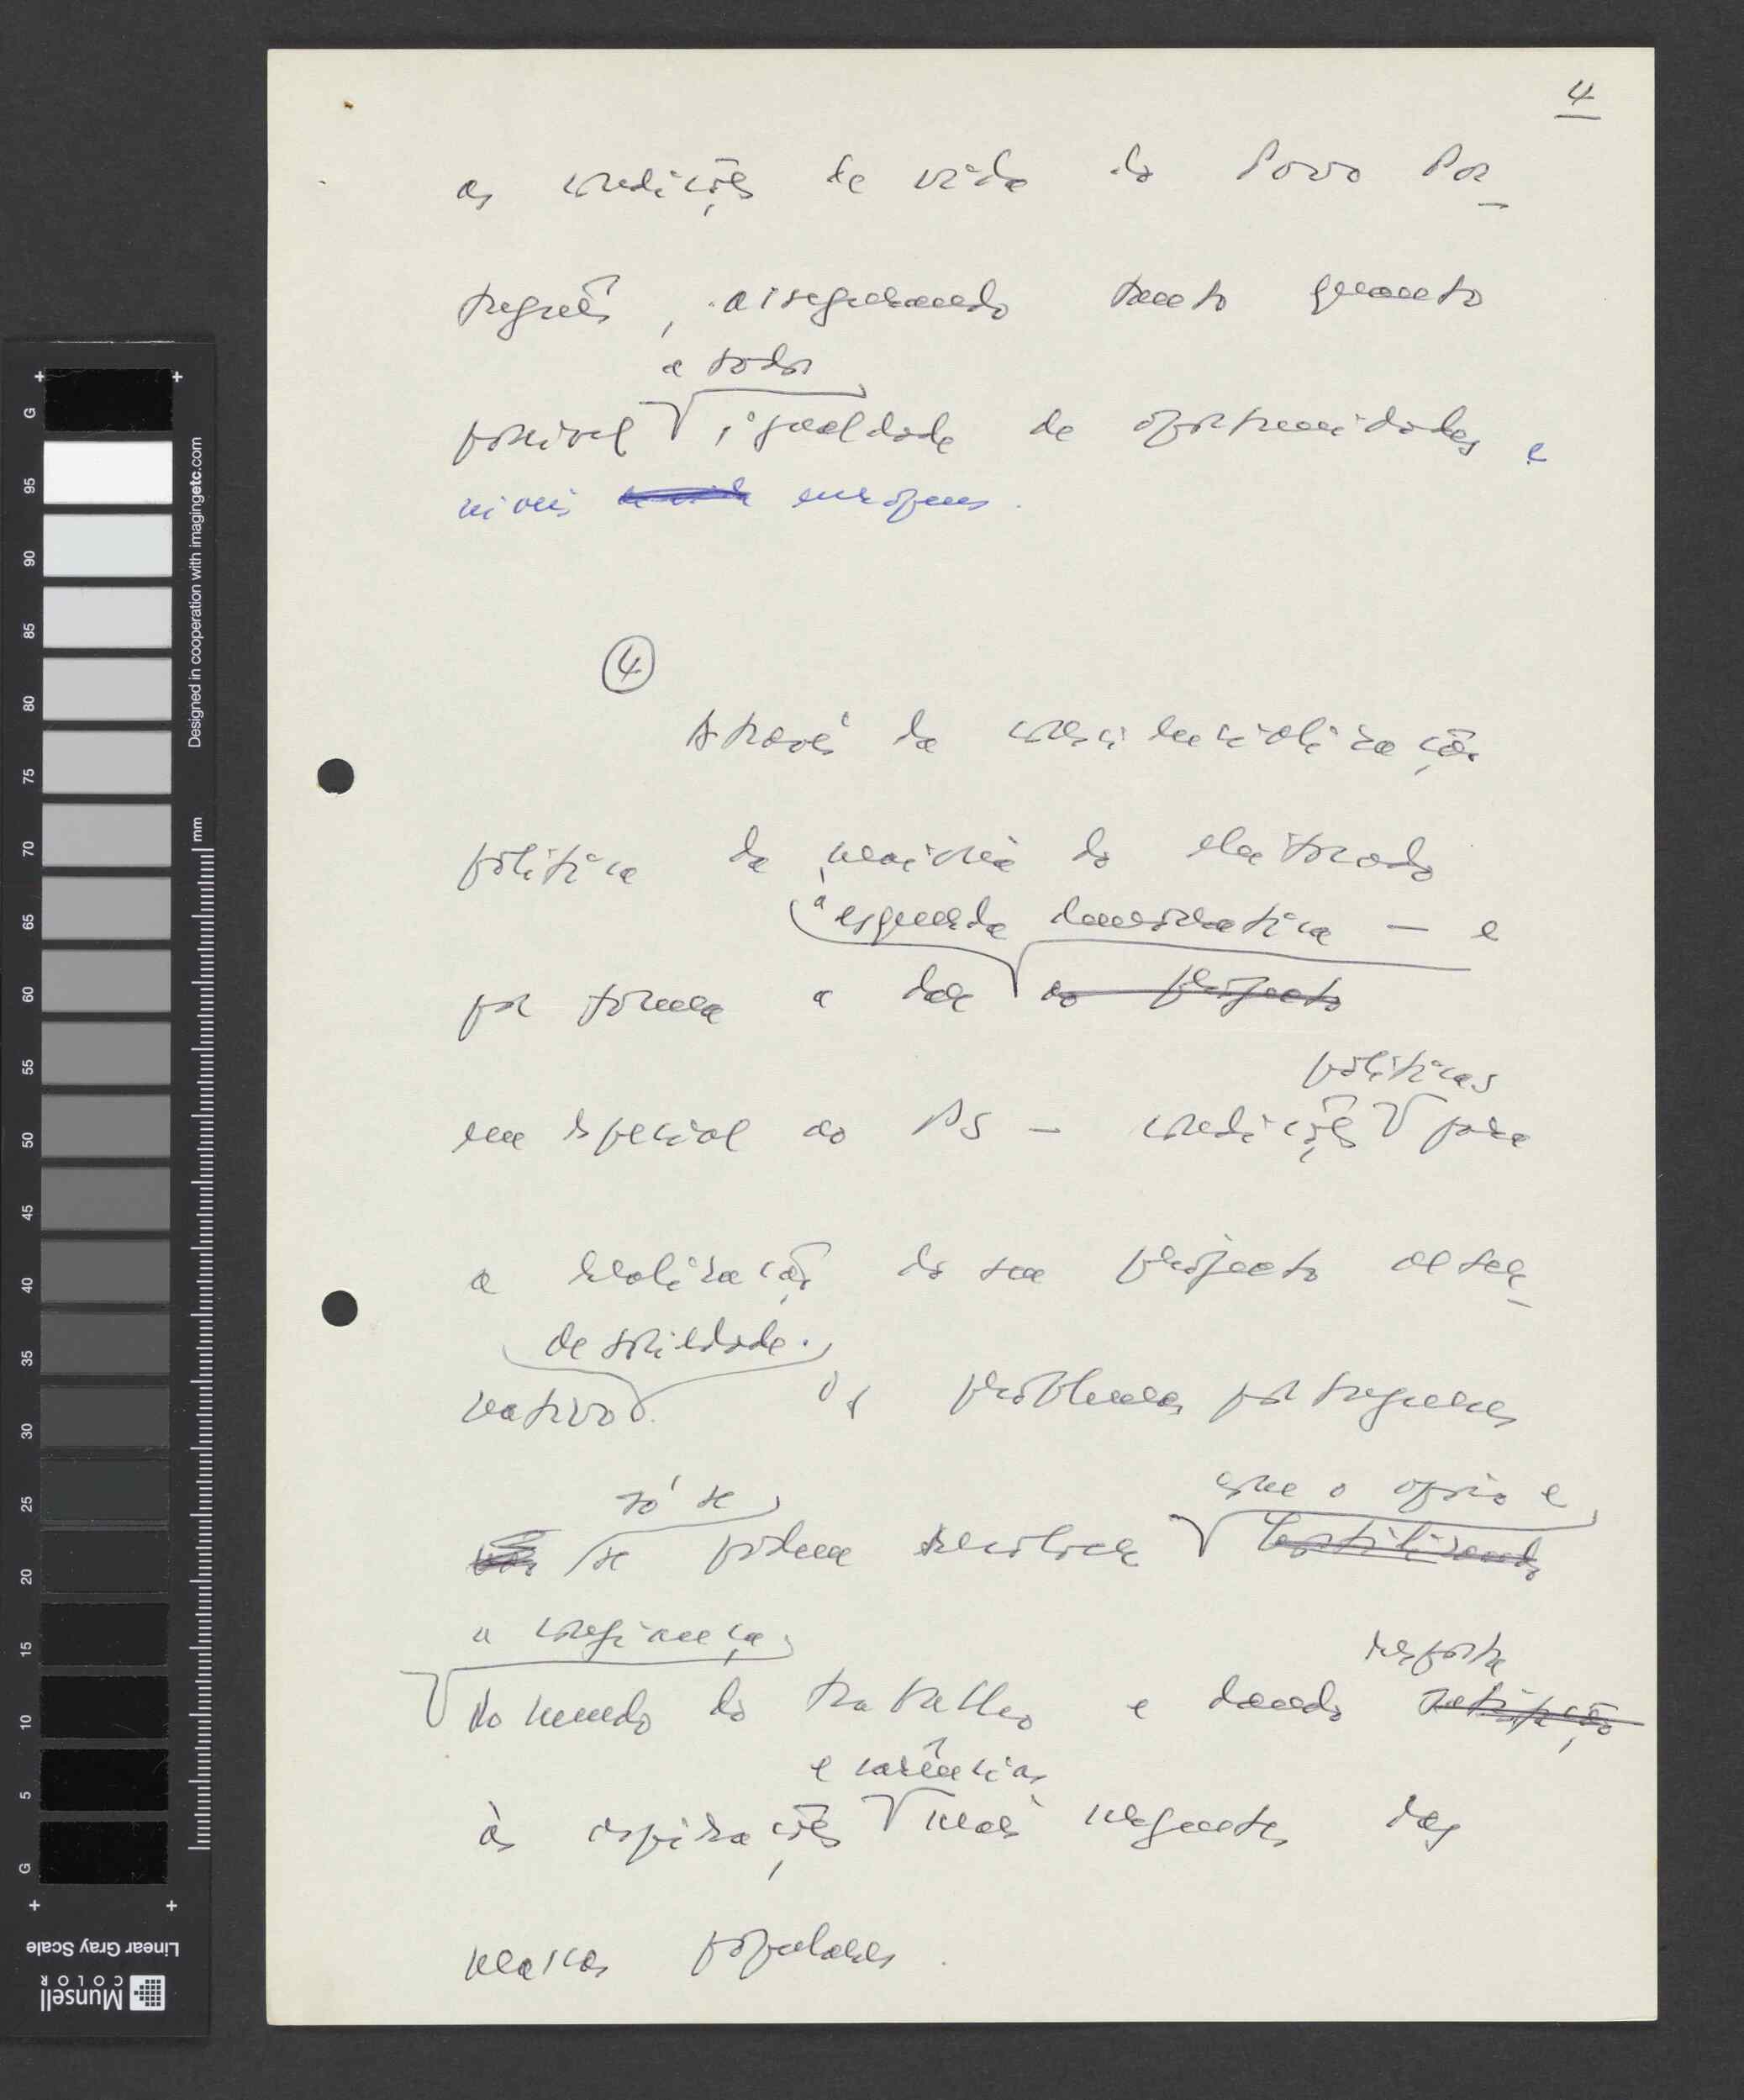 4
as condições de vida do Povo Por-
tuguês, assegurando tanto quanto
a todos
possível igualdade de oportunidades e
níveis europeus.
4
Através da consciencialização
política da maioria do eleitorado
à esquerda democrática — e
por forma a dar ao projecto
em especial ao PS — condições
políticas
para
a realização do seu projecto alter-
de solidariedade.
nativo. Os problemas portugueses
só se
se podem resolver
com o apoio e
hostilizando
a confiança
do mundo do trabalho e dando
resposta
satisfação
e carências
às aspirações mais urgentes das
massas populares.
G
95
90
85
80
75
70
65
60
55
50
45
40
35
30
25
20
15
10
5
G
mm
Designed in cooperation with imagingetc.com
Linear Gray Scale
Munsell
COLOR